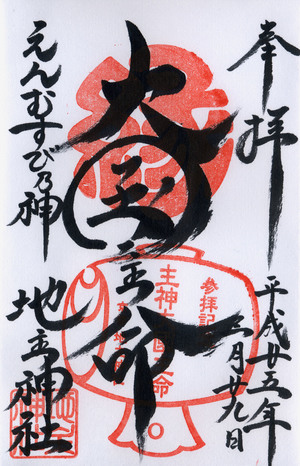 奉拝
大国主命
えんむすび乃神
地主神社
平成廿五年
二月廿九日
参拝記
主神